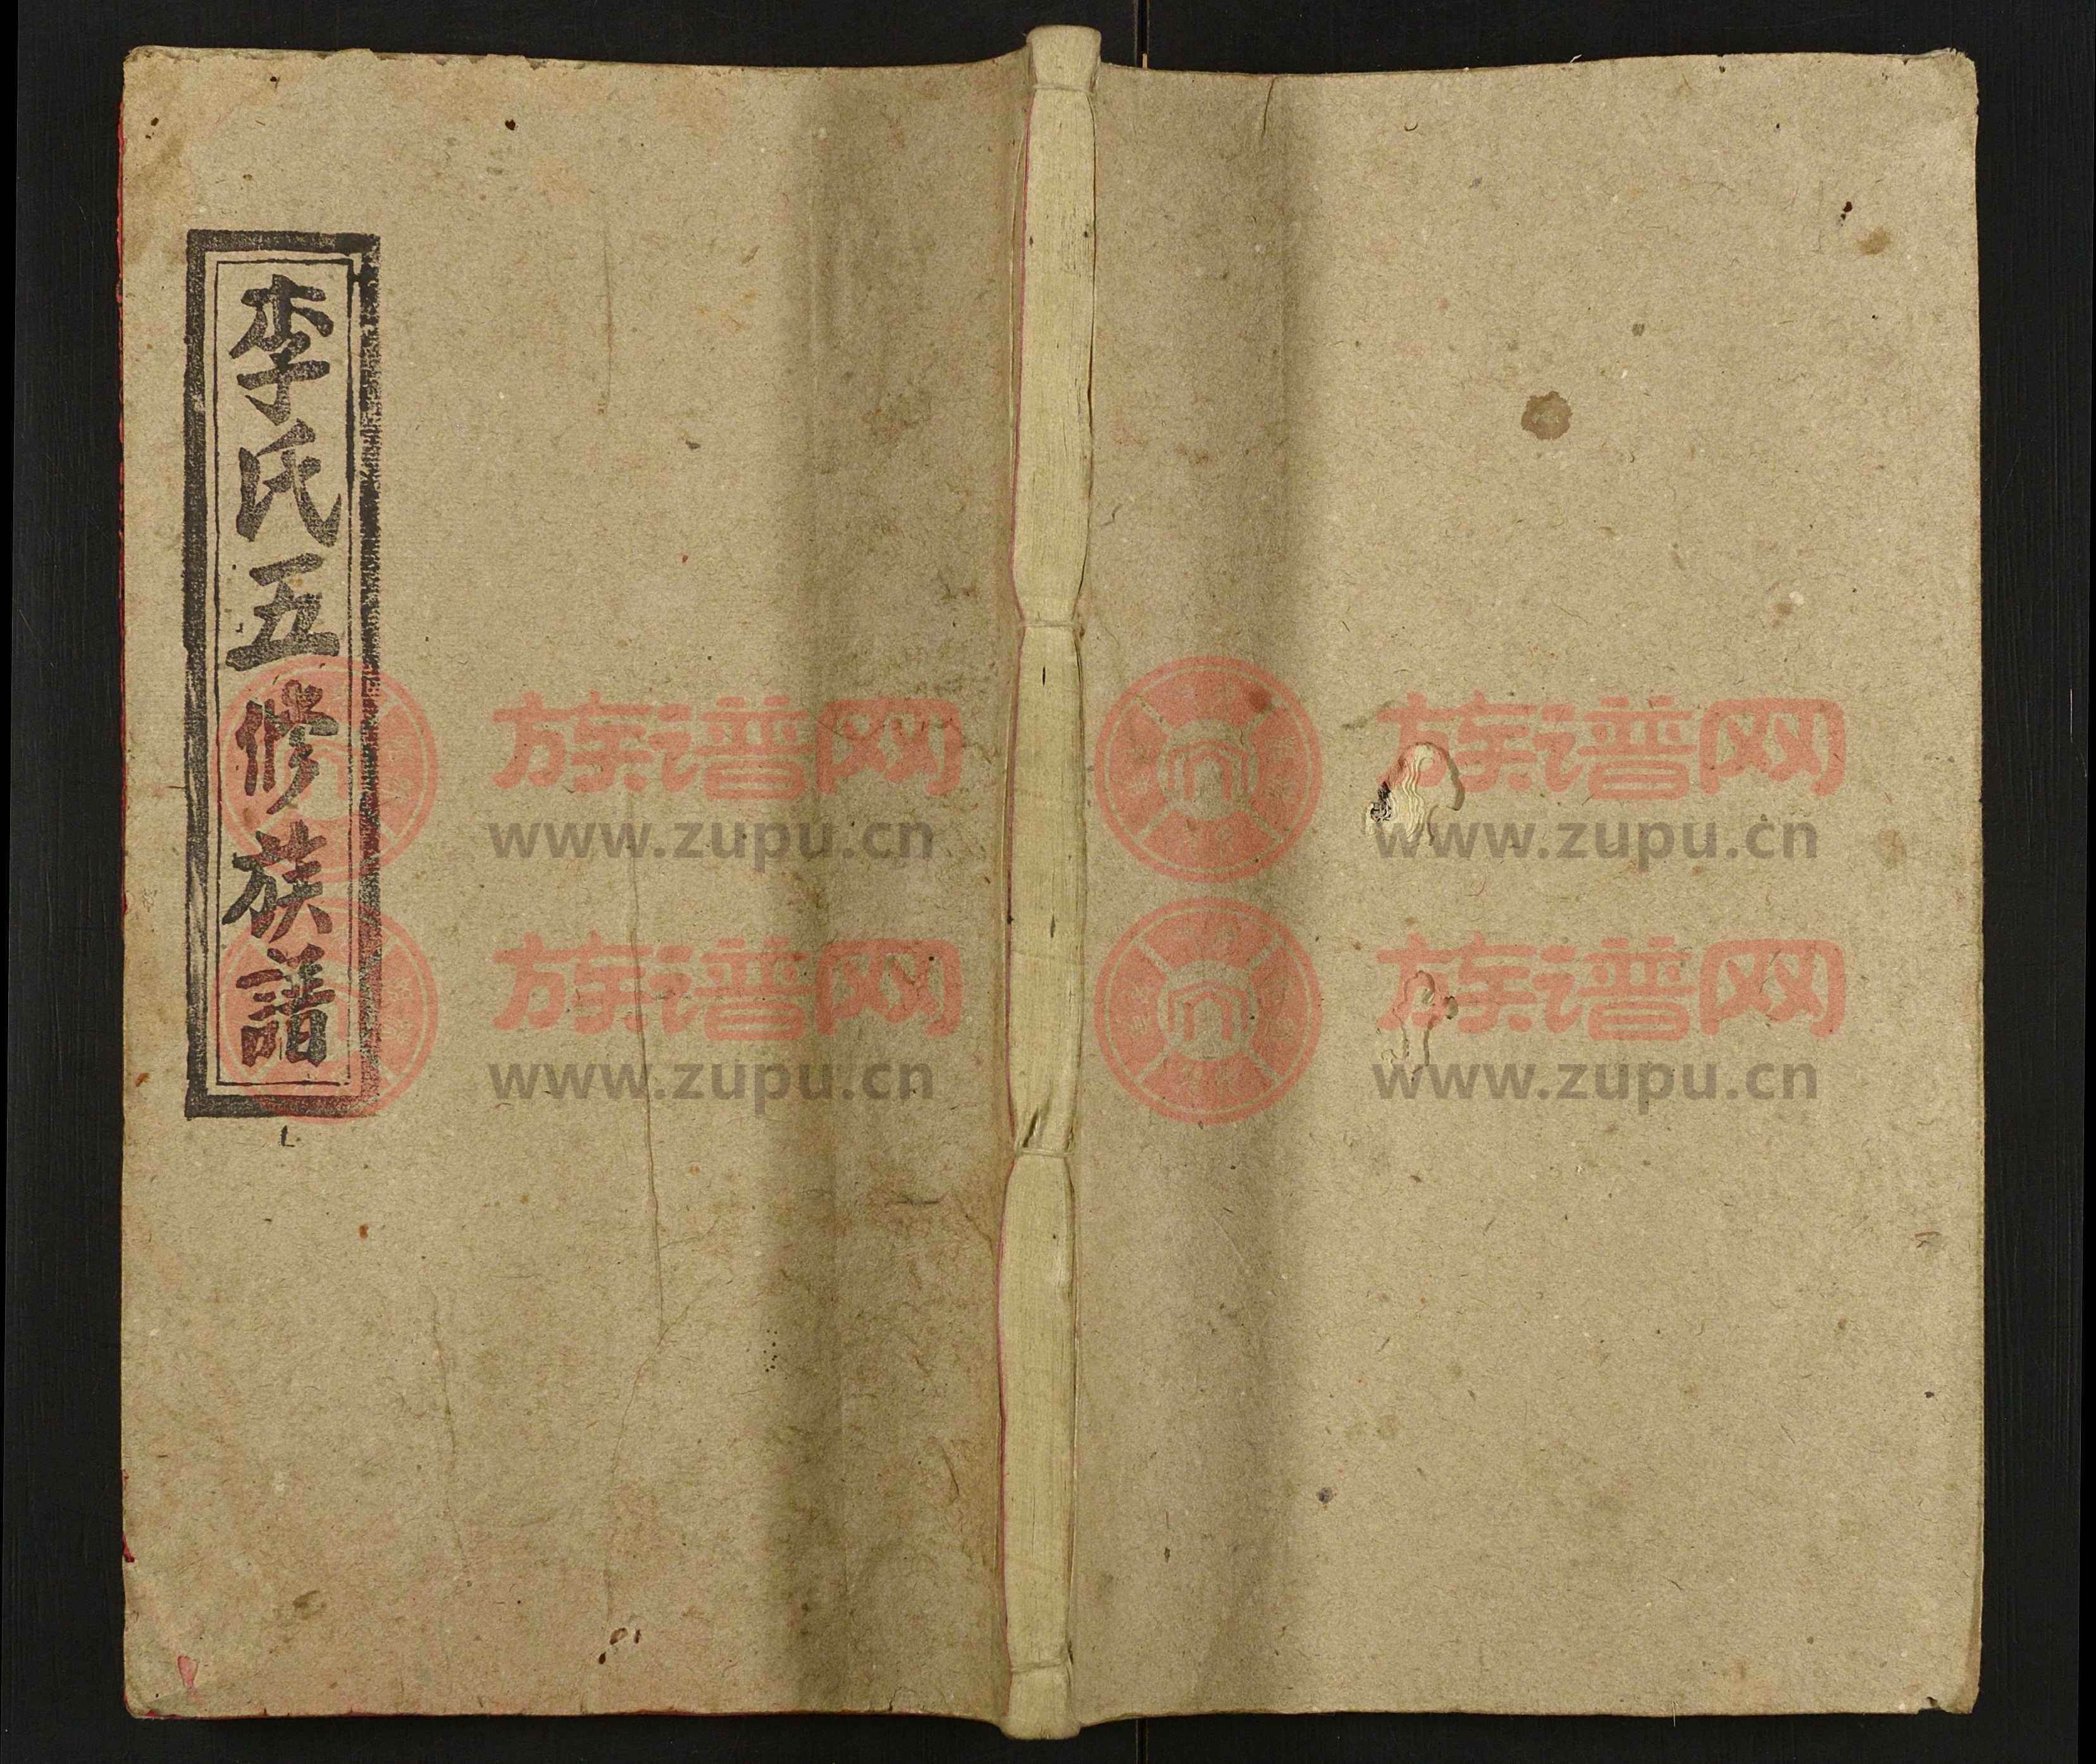 李氏五修族譜
族谱网 族谱网
www.zupu.cn www.zupu.cn
族谱网 族谱网
www.zupu.cn www.zupu.cn